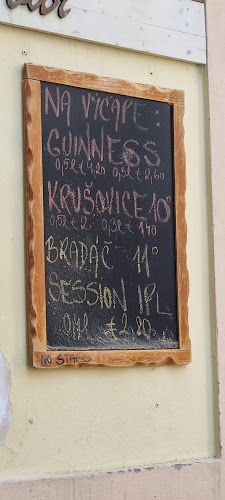 NA VÝČAPE:
GUINNESS
0,5l € 4,20 0,3l € 2,60
KRUŠOVICE 10°
0,5l € 2 0,3l € 1,40
BRADÁČ 11°
SESSION IPL
0,4l € 2,80
NO STAGS